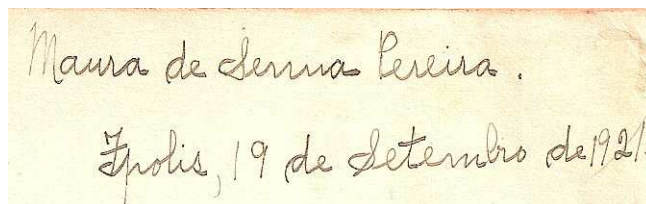 Maura de Senna Pereira.
Fpolis, 19 de Setembro de 1921.